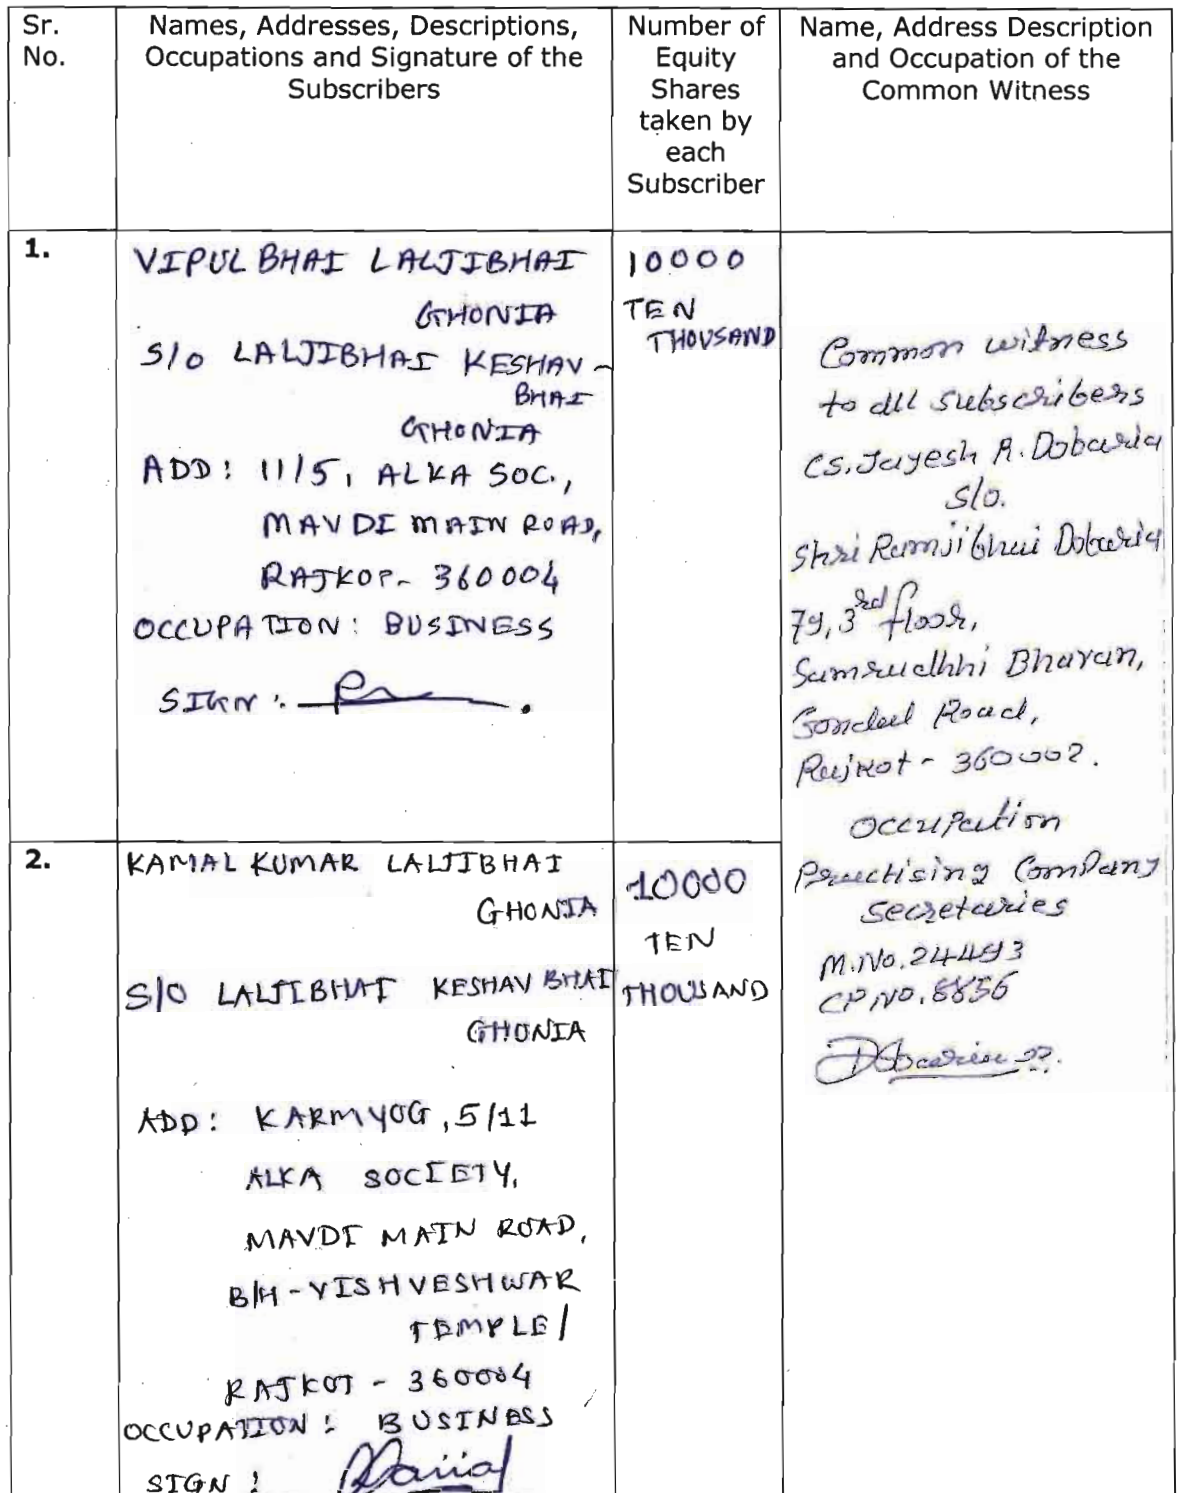 Sr.
No.
Names, Addresses, Descriptions,
Occupations and Signature of the
Subscribers
Number of
Equity
Shares
taken by
each
Subscriber
Name, Address Description
and Occupation of the
Common Witness
1.
VIPULBHAI LALJIBHAI
GHONIA
S/O LALJIBHAI KESHAV-
BHAI
GHONIA
ADD: 11/5, ALKA SOC.,
MAVDI MAIN ROAD,
RAJKOT- 360004
OCCUPATION: BUSINESS
SIGN:
10000
TEN
THOUSAND
Common witness
to all subscribers
CS. Jayesh R. Dobaria
S/o.
Shri Ramjibhai Dobaria
79, 3rd floor,
Samrudhhi Bhavan,
Gondal Road,
Rajkot - 360002.
Occupation
Practising Company
Secretaries
M.No. 24493
CP NO. 8856
2.
KAMALKUMAR LALJIBHAI
GHONIA
S/O LALJIBHAI KESHAVBHAI
GHONIA
ADD: KARMYOG, 5/11
ALKA SOCIETY,
MAVDI MAIN ROAD,
B/H - VISHVESHWAR
TEMPLE/
RAJKOT - 360004
OCCUPATION: BUSINESS
SIGN:
10000
TEN
THOUSAND